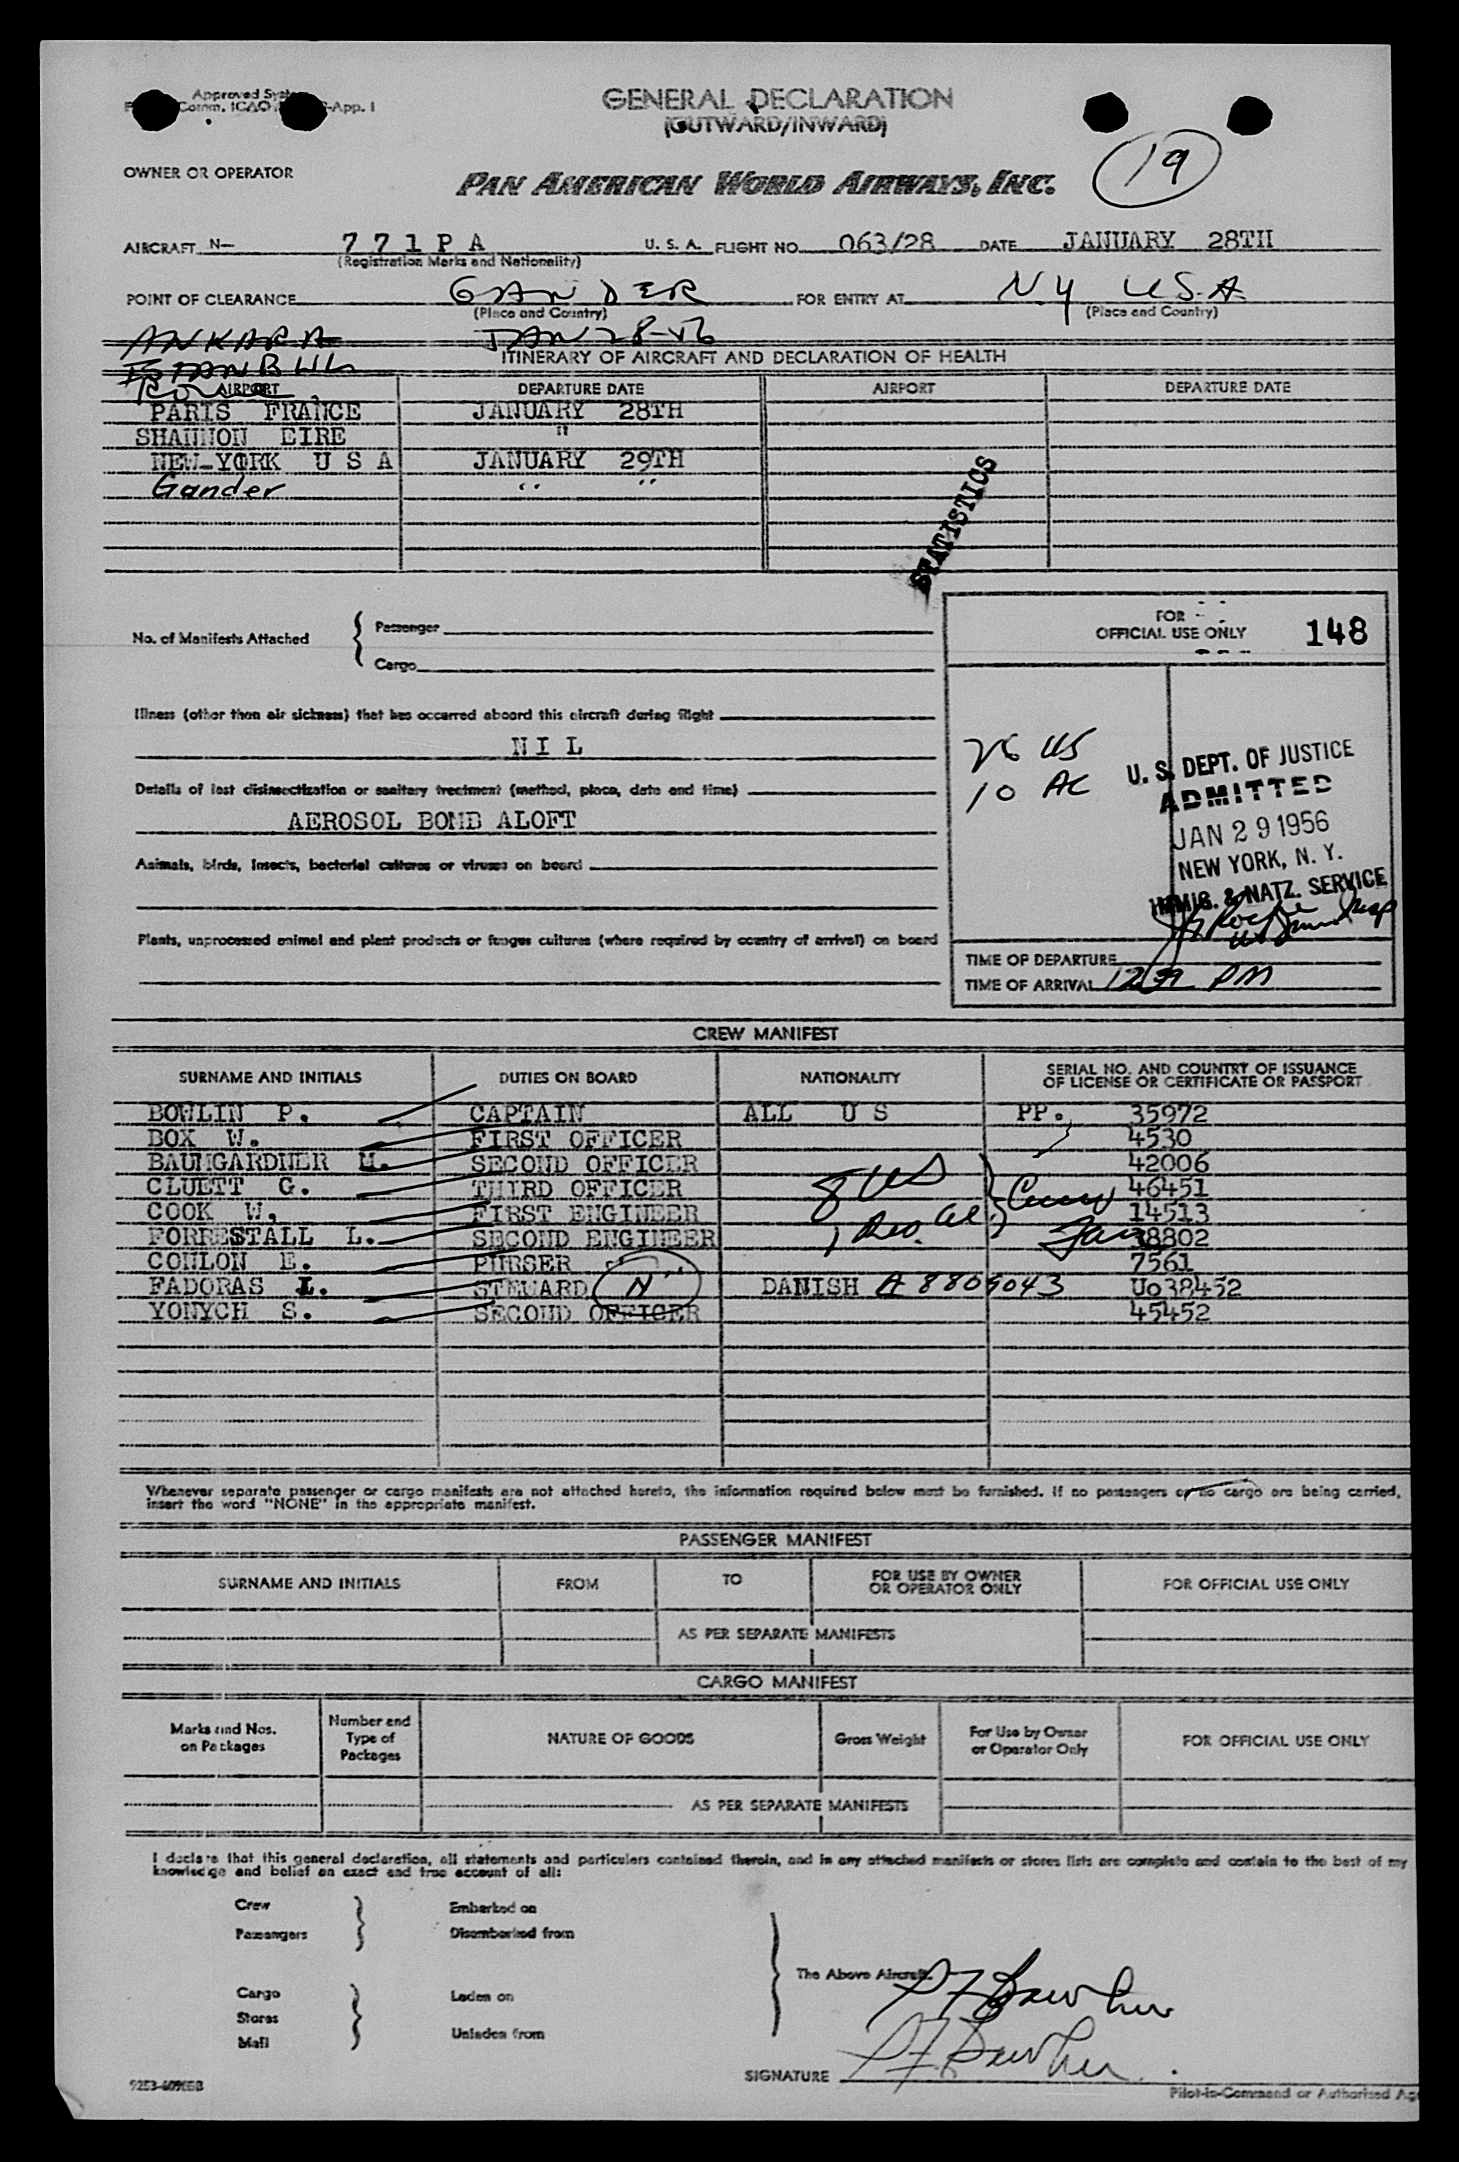 Approved
Comm. ICAO -App. 1
GENERAL DECLARATION
(OUTWARD/INWARD)
19
OWNER OR OPERATOR
PAN AMERICAN WORLD AIRWAYS, INC.
AIRCRAFT N- 771PA U. S. A. FLIGHT NO. 063/28 DATE JANUARY 28TH
(Registration Marks and Nationality)
POINT OF CLEARANCE GANDER FOR ENTRY AT NY USA
(Place and Country) (Place and Country)
ANKARA JAN 28-56
ITINERARY OF AIRCRAFT AND DECLARATION OF HEALTH
ISTANBUL
Rome
AIRPORT DEPARTURE DATE AIRPORT DEPARTURE DATE
PARIS FRANCE JANUARY 28TH
SHANNON EIRE "
NEW-YORK U S A JANUARY 29TH
Gander " "
STATISTICS
FOR
OFFICIAL USE ONLY 148
No. of Manifests Attached { Passenger
Cargo
Illness (other than air sickness) that has occurred aboard this aircraft during flight
NIL
26 US
10 AC
U. S. DEPT. OF JUSTICE
ADMITTED
JAN 29 1956
NEW YORK, N. Y.
IMMIG. & NATZ. SERVICE
Details of last disinsectization or sanitary treatment (method, place, date and time)
AEROSOL BOMB ALOFT
Animals, birds, insects, bacterial cultures or viruses on board
Plants, unprocessed animal and plant products or fungus cultures (where required by country of arrival) on board
TIME OF DEPARTURE
TIME OF ARRIVAL 1239 PM
CREW MANIFEST
SURNAME AND INITIALS DUTIES ON BOARD NATIONALITY SERIAL NO. AND COUNTRY OF ISSUANCE
OF LICENSE OR CERTIFICATE OR PASSPORT
BOWLIN P. CAPTAIN ALL U S PP. 35972
BOX W. FIRST OFFICER 4530
BAUMGARDNER M. SECOND OFFICER 42006
CLUETT G. THIRD OFFICER 8 US 46451
COOK W. FIRST ENGINEER 14513
FORRESTALL L. SECOND ENGINEER 38802
CONLON E. PURSER 7561
FADORAS L. STEWARD N DANISH A8809043 Uo38452
YONYCH S. SECOND OFFICER 45452
Whenever separate passenger or cargo manifests are not attached hereto, the information required below must be furnished. If no passengers or no cargo are being carried,
insert the word "NONE" in the appropriate manifest.
PASSENGER MANIFEST
SURNAME AND INITIALS FROM TO FOR USE BY OWNER
OR OPERATOR ONLY FOR OFFICIAL USE ONLY
AS PER SEPARATE MANIFESTS
CARGO MANIFEST
Marks and Nos.
on Packages Number and
Type of
Packages NATURE OF GOODS Gross Weight For Use by Owner
or Operator Only FOR OFFICIAL USE ONLY
AS PER SEPARATE MANIFESTS
I declare that this general declaration, all statements and particulars contained therein, and in any attached manifests or stores lists are complete and contain to the best of my
knowledge and belief an exact and true account of all:
Crew Embarked on
Passengers Disembarked from
The Above Aircraft.
Cargo Laden on
Stores
Mail Unladen from
SIGNATURE
Pilot-in-Command or Authorized